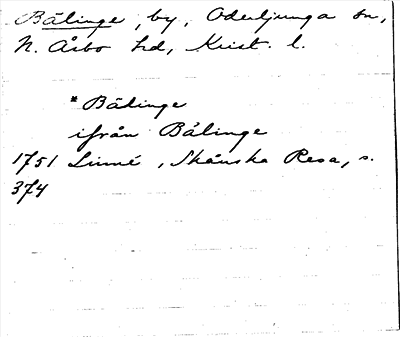 Bälinge, by, Oderljunga sn,
N. Åsbo hd, Krist. l.
* Bälinge
ifrån Bälinge
1751 Linné, Skånska Resa, s.
374